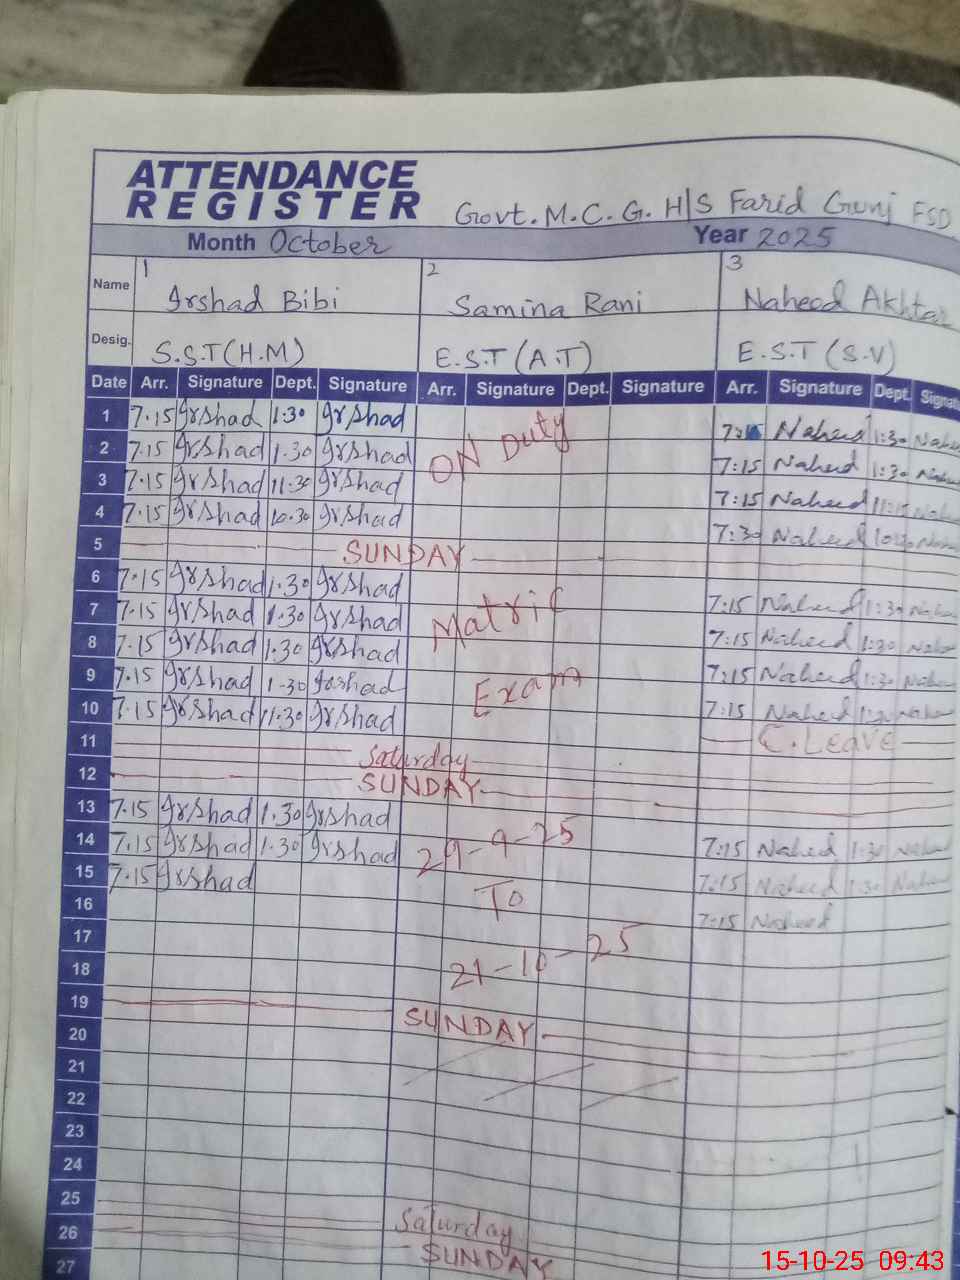 ATTENDANCE
REGISTER
Govt. M.C. G. H/S Farid Gunj FSD
Month October Year 2025
Name 1 Irshad Bibi 2 Samina Rani 3 Naheed Akhtar
Desig. S.S.T (H.M) E.S.T (A.T) E.S.T (S.V)
Date Arr. Signature Dept. Signature Arr. Signature Dept. Signature Arr. Signature Dept. Signat
1 7.15 Irshad 1:30 Irshad ON Duty 7:15 Naheed 1:30 Nahe
2 7.15 Irshad 1.30 Irshad 7:15 Naheed 1:30
3 7.15 Irshad 11:30 Irshad 7:15 Naheed 11:15
4 7.15 Irshad 10.30 Irshad 7:30 Naheed
5 SUNDAY
6 7.15 Irshad 1.30 Irshad Matric 7:15 Naheed 1:30
7 7.15 Irshad 1.30 Irshad 7:15 Naheed 1:30
8 7.15 Irshad 1.30 Irshad 7:15 Naheed 1:30
9 7.15 Irshad 1.30 Irshad Exam 7:15 Naheed
10 7.15 Irshad 11.30 Irshad C. Leave
11 Saturday
12 SUNDAY
13 7.15 Irshad 1.30 Irshad 7:15 Naheed 1:30
14 7.15 Irshad 1.30 Irshad 29-9-25 7:15 Naheed 1:30
15 7.15 Irshad 7:15 Naheed
16 To
17
18 21-10-25
19 SUNDAY
20
21
22
23
24
25 Saturday
26 SUNDAY
27
15-10-25 09:43